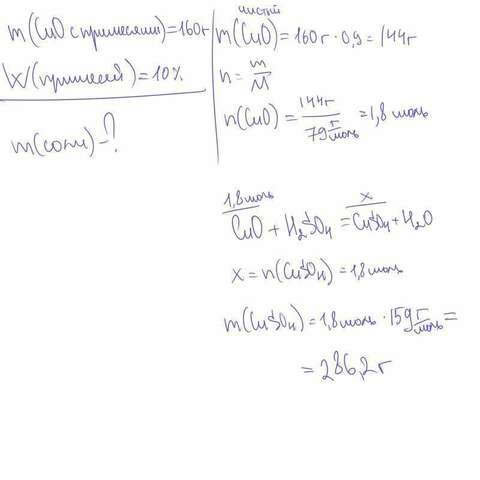 m(CuO с примесями)=160г
W(примесей)=10%
m(соли)-?
чистый
m(CuO)=160г·0,9=144г
n=m/M
n(CuO)=144г/79г/моль=1,8моль
1,8моль x
CuO+H₂SO₄=CuSO₄+H₂O
x=n(CuSO₄)=1,8моль
m(CuSO₄)=1,8моль·159г/моль=
=286,2г